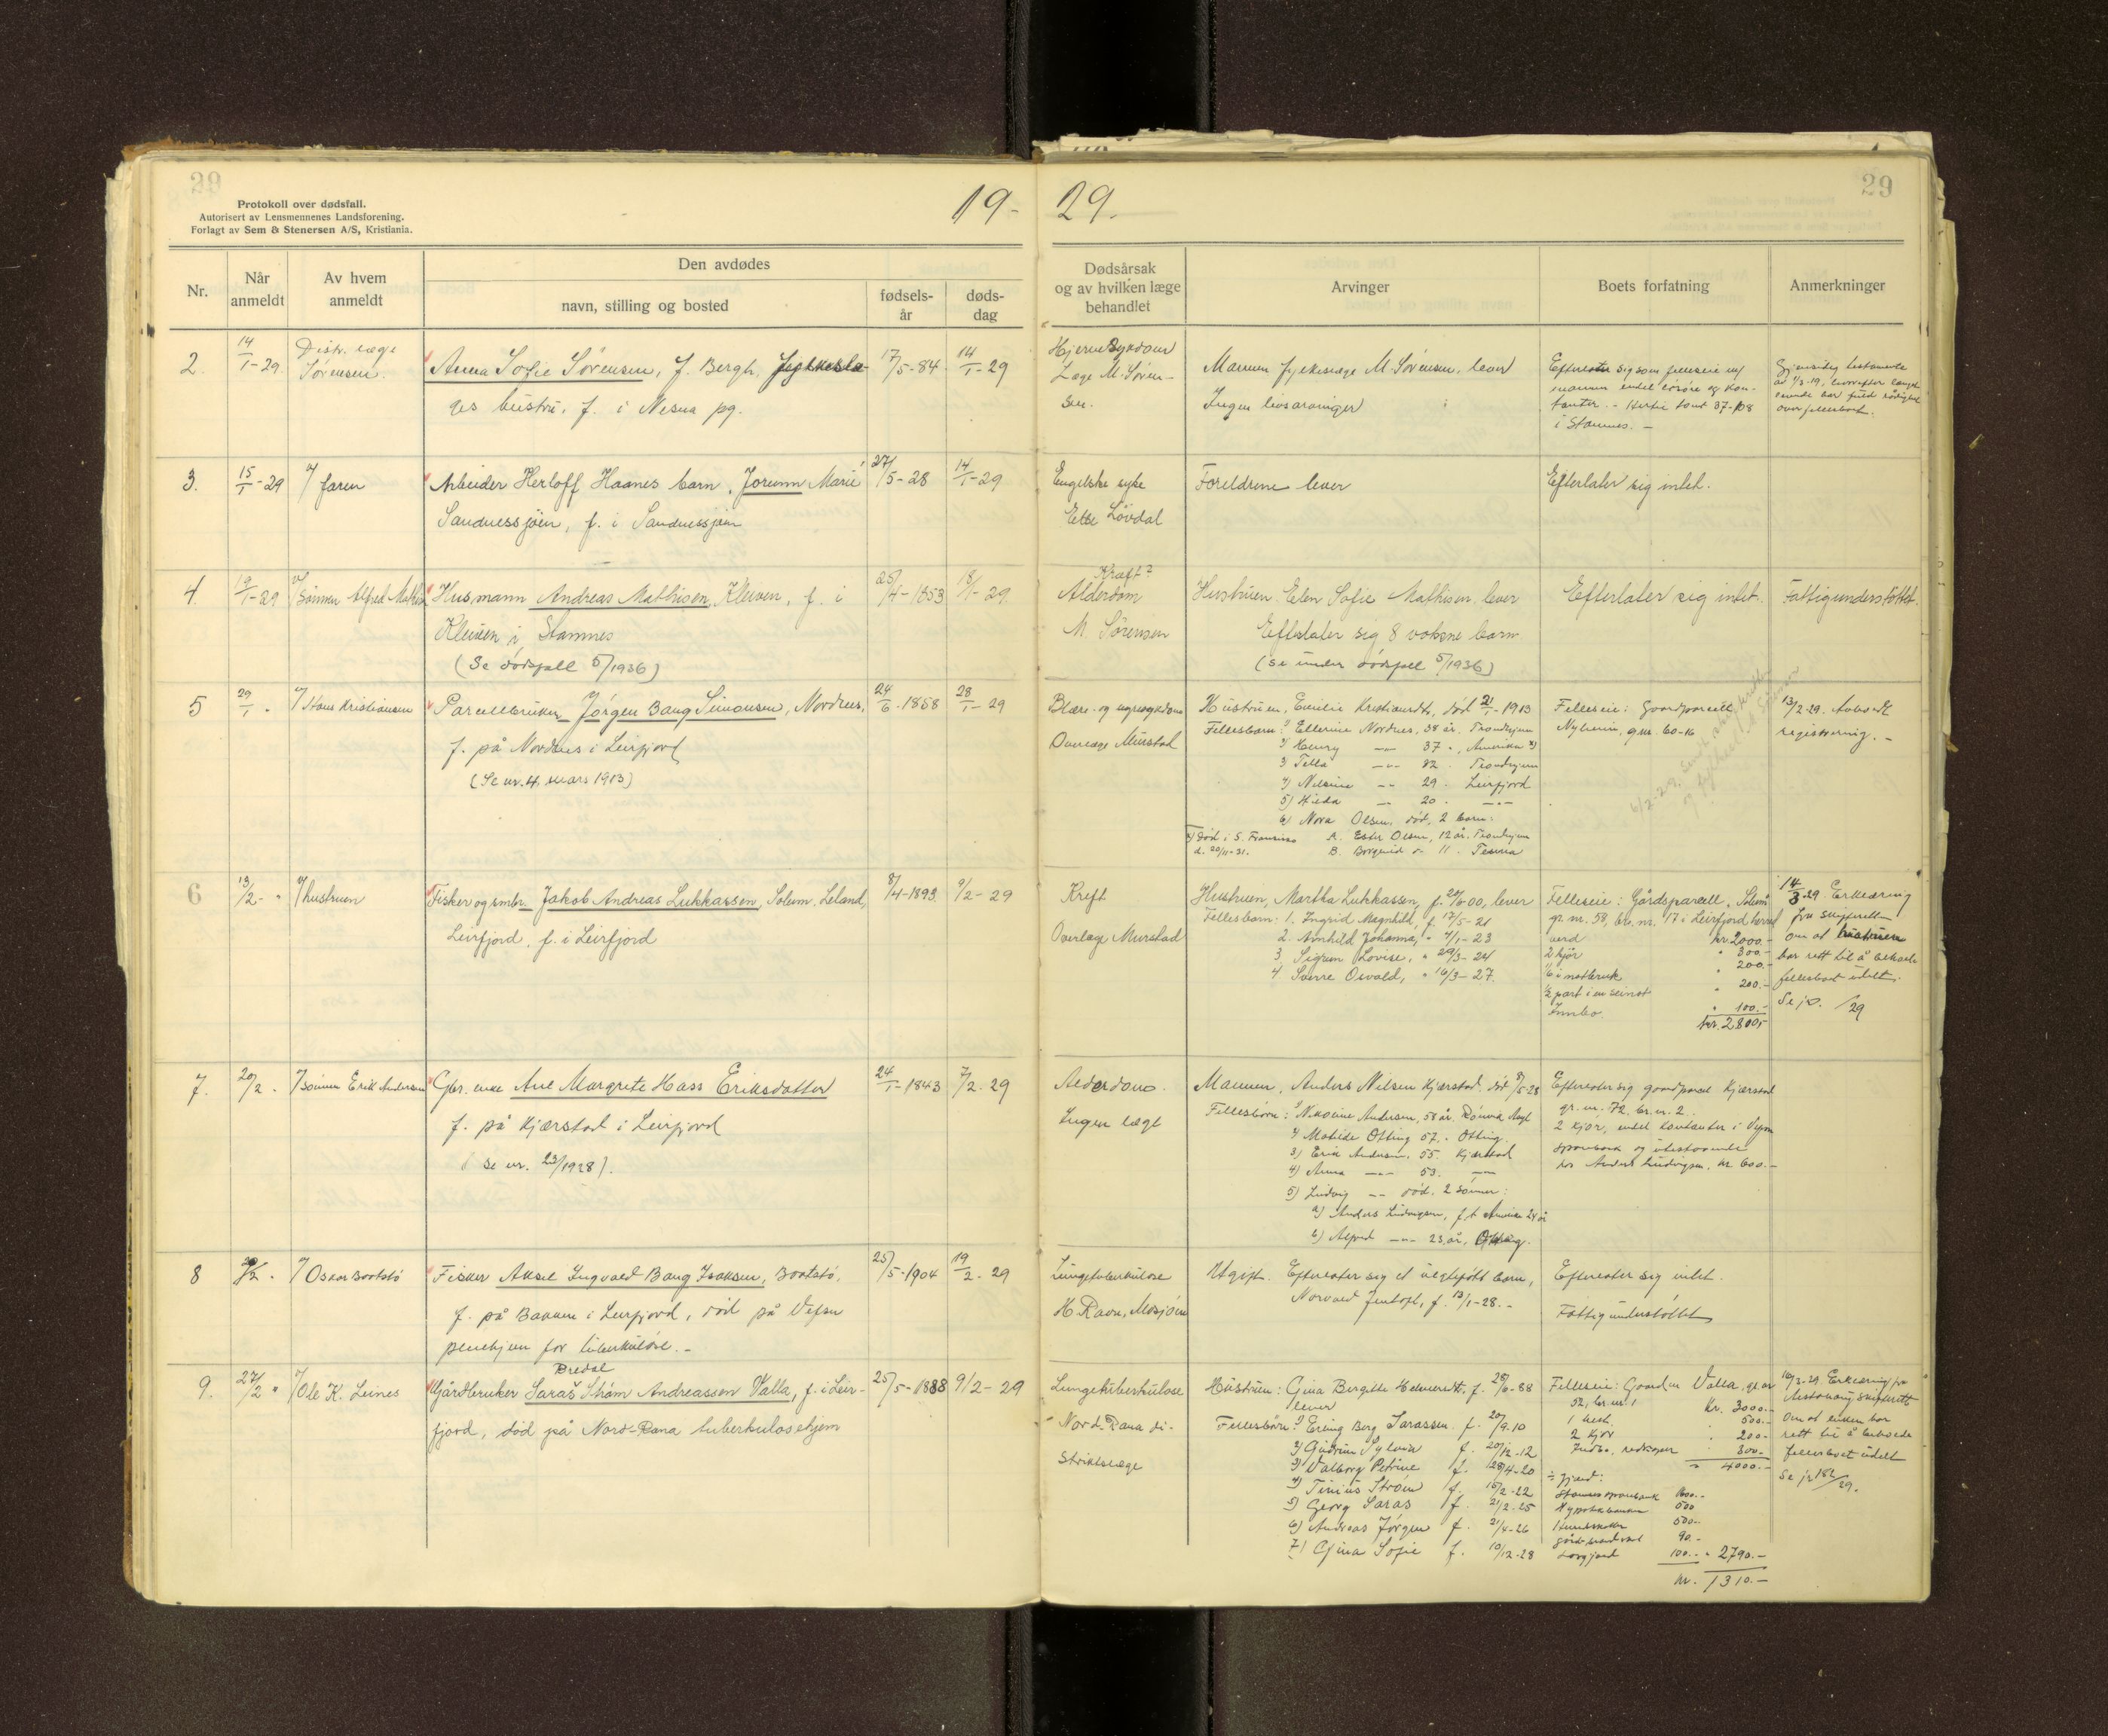 29
Protokoll over dødsfall.
Autorisert av Lensmennenes Landsforening.
Forlagt av Sem & Stenersen A/S, Kristiania.
19-
29.
29
Nr.
Når anmeldt
Av hvem anmeldt
Den avdødes
navn, stilling og bosted
fødsels-år
døds-dag
Dødsårsak og av hvilken læge behandlet
Arvinger
Boets forfatning
Anmerkninger
2.
14/1-29.
Distr. læge
Sørensen.
Anna Sofie Sørensen, f. Bergh,
ges hustru, f. i Nesna pg.
17/5-84.
14/1-29
Hjernesykdom
Læge M. Søren-
sen.
Mannen fylkeslæge M. Sørensen, lever
Ingen livsarvinger
Efterlater sig som felleseie m/
mannen endel løsøre og kon-
tanter. - Hertil tomt 37-108
i Stamnes. -
Gjensidig testamente
av 1/3-19, hvorefter længst
levende har fuld rådighet
over fellesboet.
3.
15/1-29
v/ faren
Arbeider Herloff Haanes barn, Jorunn Marie
Sandnessjøen, f. i Sandnessjøen
27/5-28
14/1-29
Engelske syke
Else Løvdal
Foreldrene lever
Efterlater sig intet.
4.
19/1-29
v/ sønnen Alfred Mathis
Husmann Andreas Mathisen, Kleiven, f. i
Kleiven i Stamnes
(Se dødsfall 5/1936)
25/4-1853
18/1-29.
Kræft?
Alderdom
M. Sørensen
Hustruen Elen Sofie Mathisen lever
Efterlater sig 8 voksne barn
(Se under dødsfall 5/1936)
Efterlater sig intet.
Fattigunderstøttet.
5
29/1 "
v/ Hans Kristiansen
Parcellbruker Jørgen Bang Simonsen, Nordnes,
f. på Nordnes i Leirfjord
(Se nr. 4, mars 1913)
24/6-1858
28/1-29
Blære- og nyresykdom
Overlæge Murstad
Hustruen, Emilie Kristiansdtr, død 21/1-1913
Fellesbarn: 1) Ellerine Nordnes, 38 år. Trondhjem
2) Henry -"- 37 ", Amerika x)
3 Tella -"- 32 . Trondhjem
4) Nilsine -"- 29 . Leirfjord
5) Hilda - 20 . -"-
6) Nora Olsen, død, 2 barn:
x) Død i S. Fransisco A. Ester Olsen, 12 år, Trondhjem
d. 20/11-31. B. Borghild " 11 .
Felleseie: Gaardparcell
Nyheim, gnr. 60-16
6/2-29. Sendt
13/2-29. Avholdt
registrering. -
6
13/2- "
v/ hustruen
Fisker og smbr. Jakob Andreas Lukkassen, Solum, Leland,
Leirfjord, f. i Leirfjord
8/4-1893.
9/2-29
Kreft
Overlæge Murstad
Hustruen, Martha Lukkassen, f. 20/6-00, lever
Fellesbarn: 1. Ingrid Magnhild, f. 13/5-21
2. Arnhild Johanna, " 4/1-23
3. Sigrun Lovise, " 29/3-24
4. Sverre Osvald, " 16/3-27.
Felleseie: Gårdsparcell "Solum"
gr. nr. 58, br. nr. 17 i Leirfjord herred
verd kr. 2000.-
2 kjør " 300.-
1/6 i notbruk " 200.-
1/2 part i en seinot " 200.-
Innbo. " 100.-
kr. 2.800,-
14/3-29 Erklæring
fra skifterett
om at hustruen
har rett til å beholde
fellesboet udelt.
Se jo. /29
7.
20/2 .
v/ sønnen Erik Andersen
Gbr. enke Ane Margrete Hass Eriksdatter
f. på Kjærstad i Leirfjord
(se nr. 23/1928).
24/1-1843
7/2-29
Alderdom.
Ingen læge
Mannen, Anders Nilsen Kjærstad, død 8/5-28
Fellesbørn: 1) Nikoline Andersen, 58 år.
2) Matilde Olting 57 . Olting.
3) Erik Andersen, 55. Kjærstad
4) Anna -"- 53. -"-
5) Ludvig -"- død. 2 sønner:
a) Anders Ludvigsen, f. t. Amerika 24 år
b) Alfred -"- 23 år,
Efterlater sig gaardparcel Kjærstad
gr. nr. 72, br. nr. 2.
2 kjør, endel kontanter i Vefsn
sparebank og utestaaende
hos Anders Ludvigsen, kr. 600.-
8
v/ Oskar Baatstø
Fisker Aksel Ingvald Bang Isaksen, Baatstø,
f. på Bakken i Leirfjord, død på Vefsn
pleiehjem for tuberkuløse. -
25/5-1904
19/2-29
Lungetuberkulose
H. Ravn, Mosjøen
Ugift. Efterlater sig et uegtefødt barn,
Norvald Jentoft, f. 13/1-28. -
Efterlater sig intet.
Fattigunderstøttet
9.
27/2 "
v/ Ole K. Leines
Bredal
Gårdbruker Saras Strøm Andreassen Valla, f. i Leir-
fjord, død på Nord-Rana tuberkulosehjem
25/5-1888
9/2-29
Lungetuberkulose
Nord-Rana di-
striktslæge
Hustruen: Gina Bergitte Helmersdt. f. 28/6-88
lever
Fellesbørn: 1) Erling Berg Sarassen f. 20/9.10
2) Gudrun Sylvia f. 20/12-12
3) Valborg Petrine f. 28/4-20
4) Tinius Strøm f. 15/2-22
5) Georg Saras f. 21/2-25
6) Andreas Jørgen f. 21/4-26
7) Gina Sofie f. 10/12-28
Felleseie: Gaarden Valla, gr. nr
52, br. nr. 1 kr. 3000.-
1 hest. " 500.-
2 kjør " 200.-
Indbo, redskaper 300.-
" 4000.-
÷ gjæld:
Stamnes sparebank 1600.-
Hypotekbanken 500
500.-
90.-
100.- " 2790.-
kr. 1310.-
16/3-29 Erklæring fra
Alstahaug skifterett
om at enken har
rett til å beholde
fellesboet udelt
Se jr 182/29.